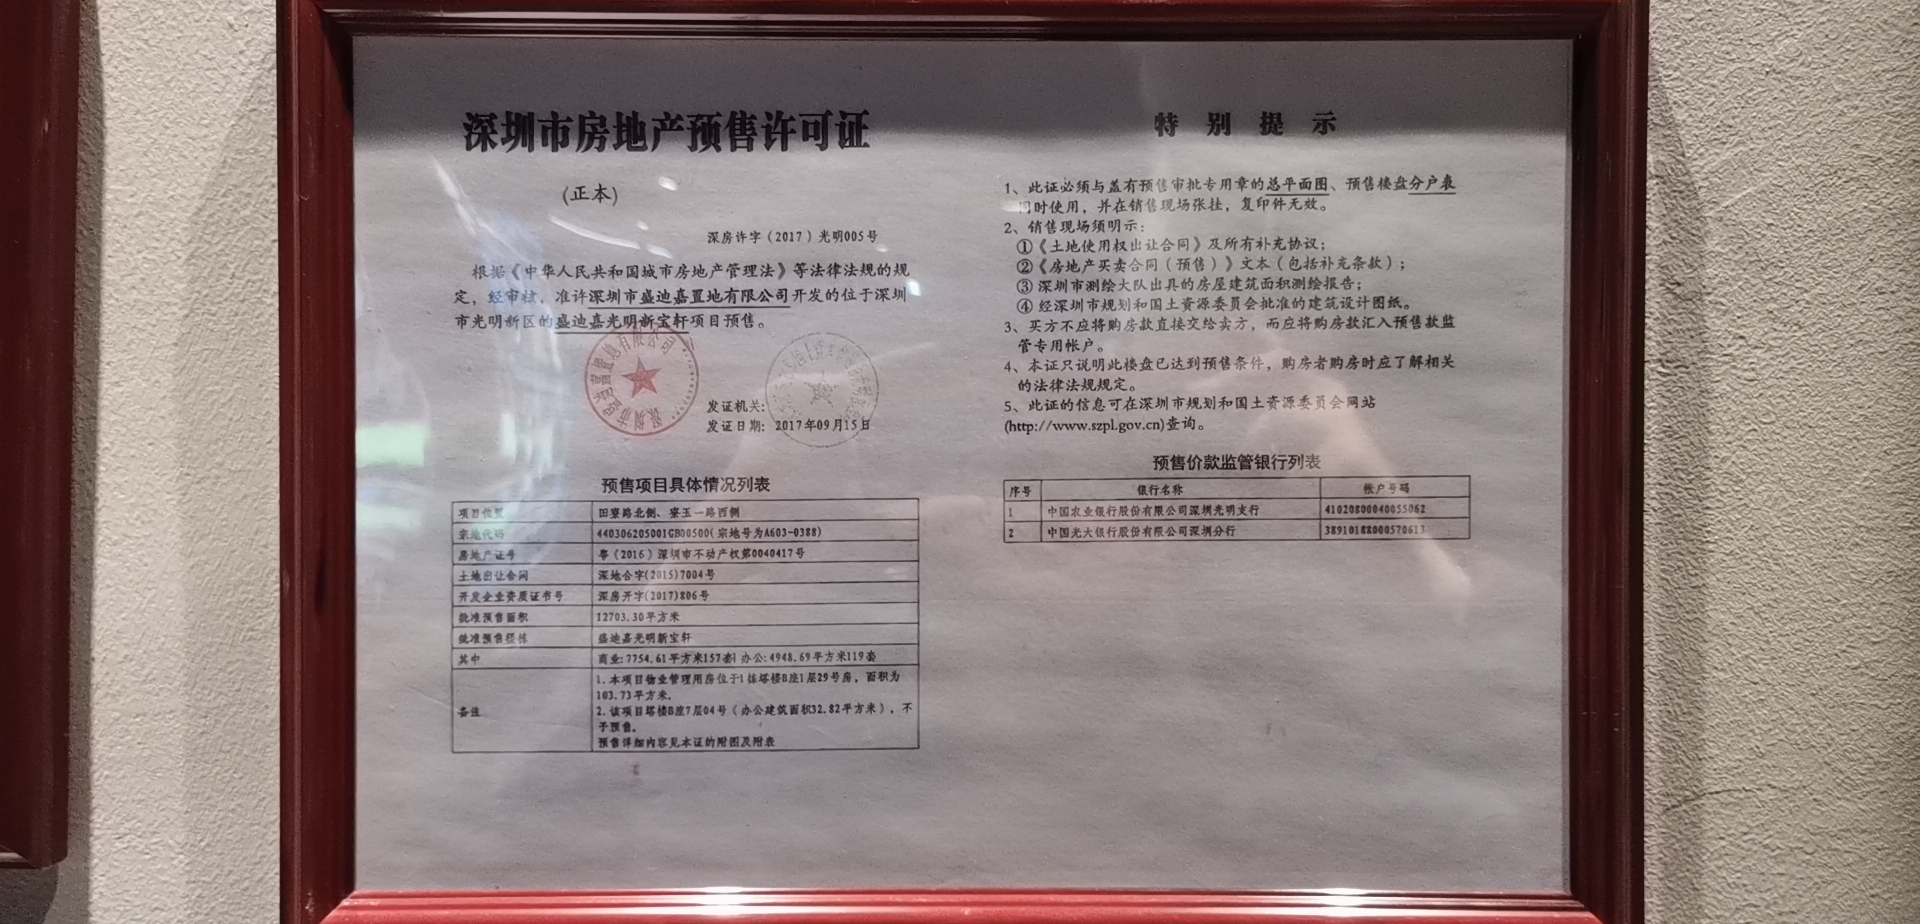 深圳市房地产预售许可证
(正本)
深房许字（2017）光明005号
根据《中华人民共和国城市房地产管理法》等法律法规的规
定，经审核，准许深圳市盛迪嘉置地有限公司开发的位于深圳
市光明新区的盛迪嘉光明新宝轩项目预售。
深圳市盛迪嘉置地有限公司
发证机关:
发证日期: 2017年09月15日
预售项目具体情况列表
项目位置 田寮路北侧、寮玉一路西侧
宗地代码 440306205001GB00500(宗地号为A603-0388)
房地产证号 粤（2016）深圳市不动产权第0040417号
土地出让合同 深地合字(2015)7004号
开发企业资质证书号 深房开字(2017)806号
批准预售面积 12703.30平方米
批准预售楼栋 盛迪嘉光明新宝轩
其中 商业:7754.61平方米157套| 办公:4948.69平方米119套
备注
1.本项目物业管理用房位于1栋塔楼B座1层29号房，面积为
103.73平方米。
2.该项目塔楼B座7层04号（办公建筑面积32.82平方米），不
予预售。
预售详细内容见本证的附图及附表
特别提示
1、此证必须与盖有预售审批专用章的总平面图、预售楼盘分户表
同时使用，并在销售现场张挂，复印件无效。
2、销售现场须明示:
①《土地使用权出让合同》及所有补充协议；
②《房地产买卖合同（预售）》文本（包括补充条款）；
③ 深圳市测绘大队出具的房屋建筑面积测绘报告；
④ 经深圳市规划和国土资源委员会批准的建筑设计图纸。
3、买方不应将购房款直接交给卖方，而应将购房款汇入预售款监
管专用帐户。
4、本证只说明此楼盘已达到预售条件，购房者购房时应了解相关
的法律法规规定。
5、此证的信息可在深圳市规划和国土资源委员会网站
(http://www.szpl.gov.cn)查询。
预售价款监管银行列表
序号 银行名称 帐户号码
1 中国农业银行股份有限公司深圳光明支行 41020800040055062
2 中国光大银行股份有限公司深圳分行 38910188000570613